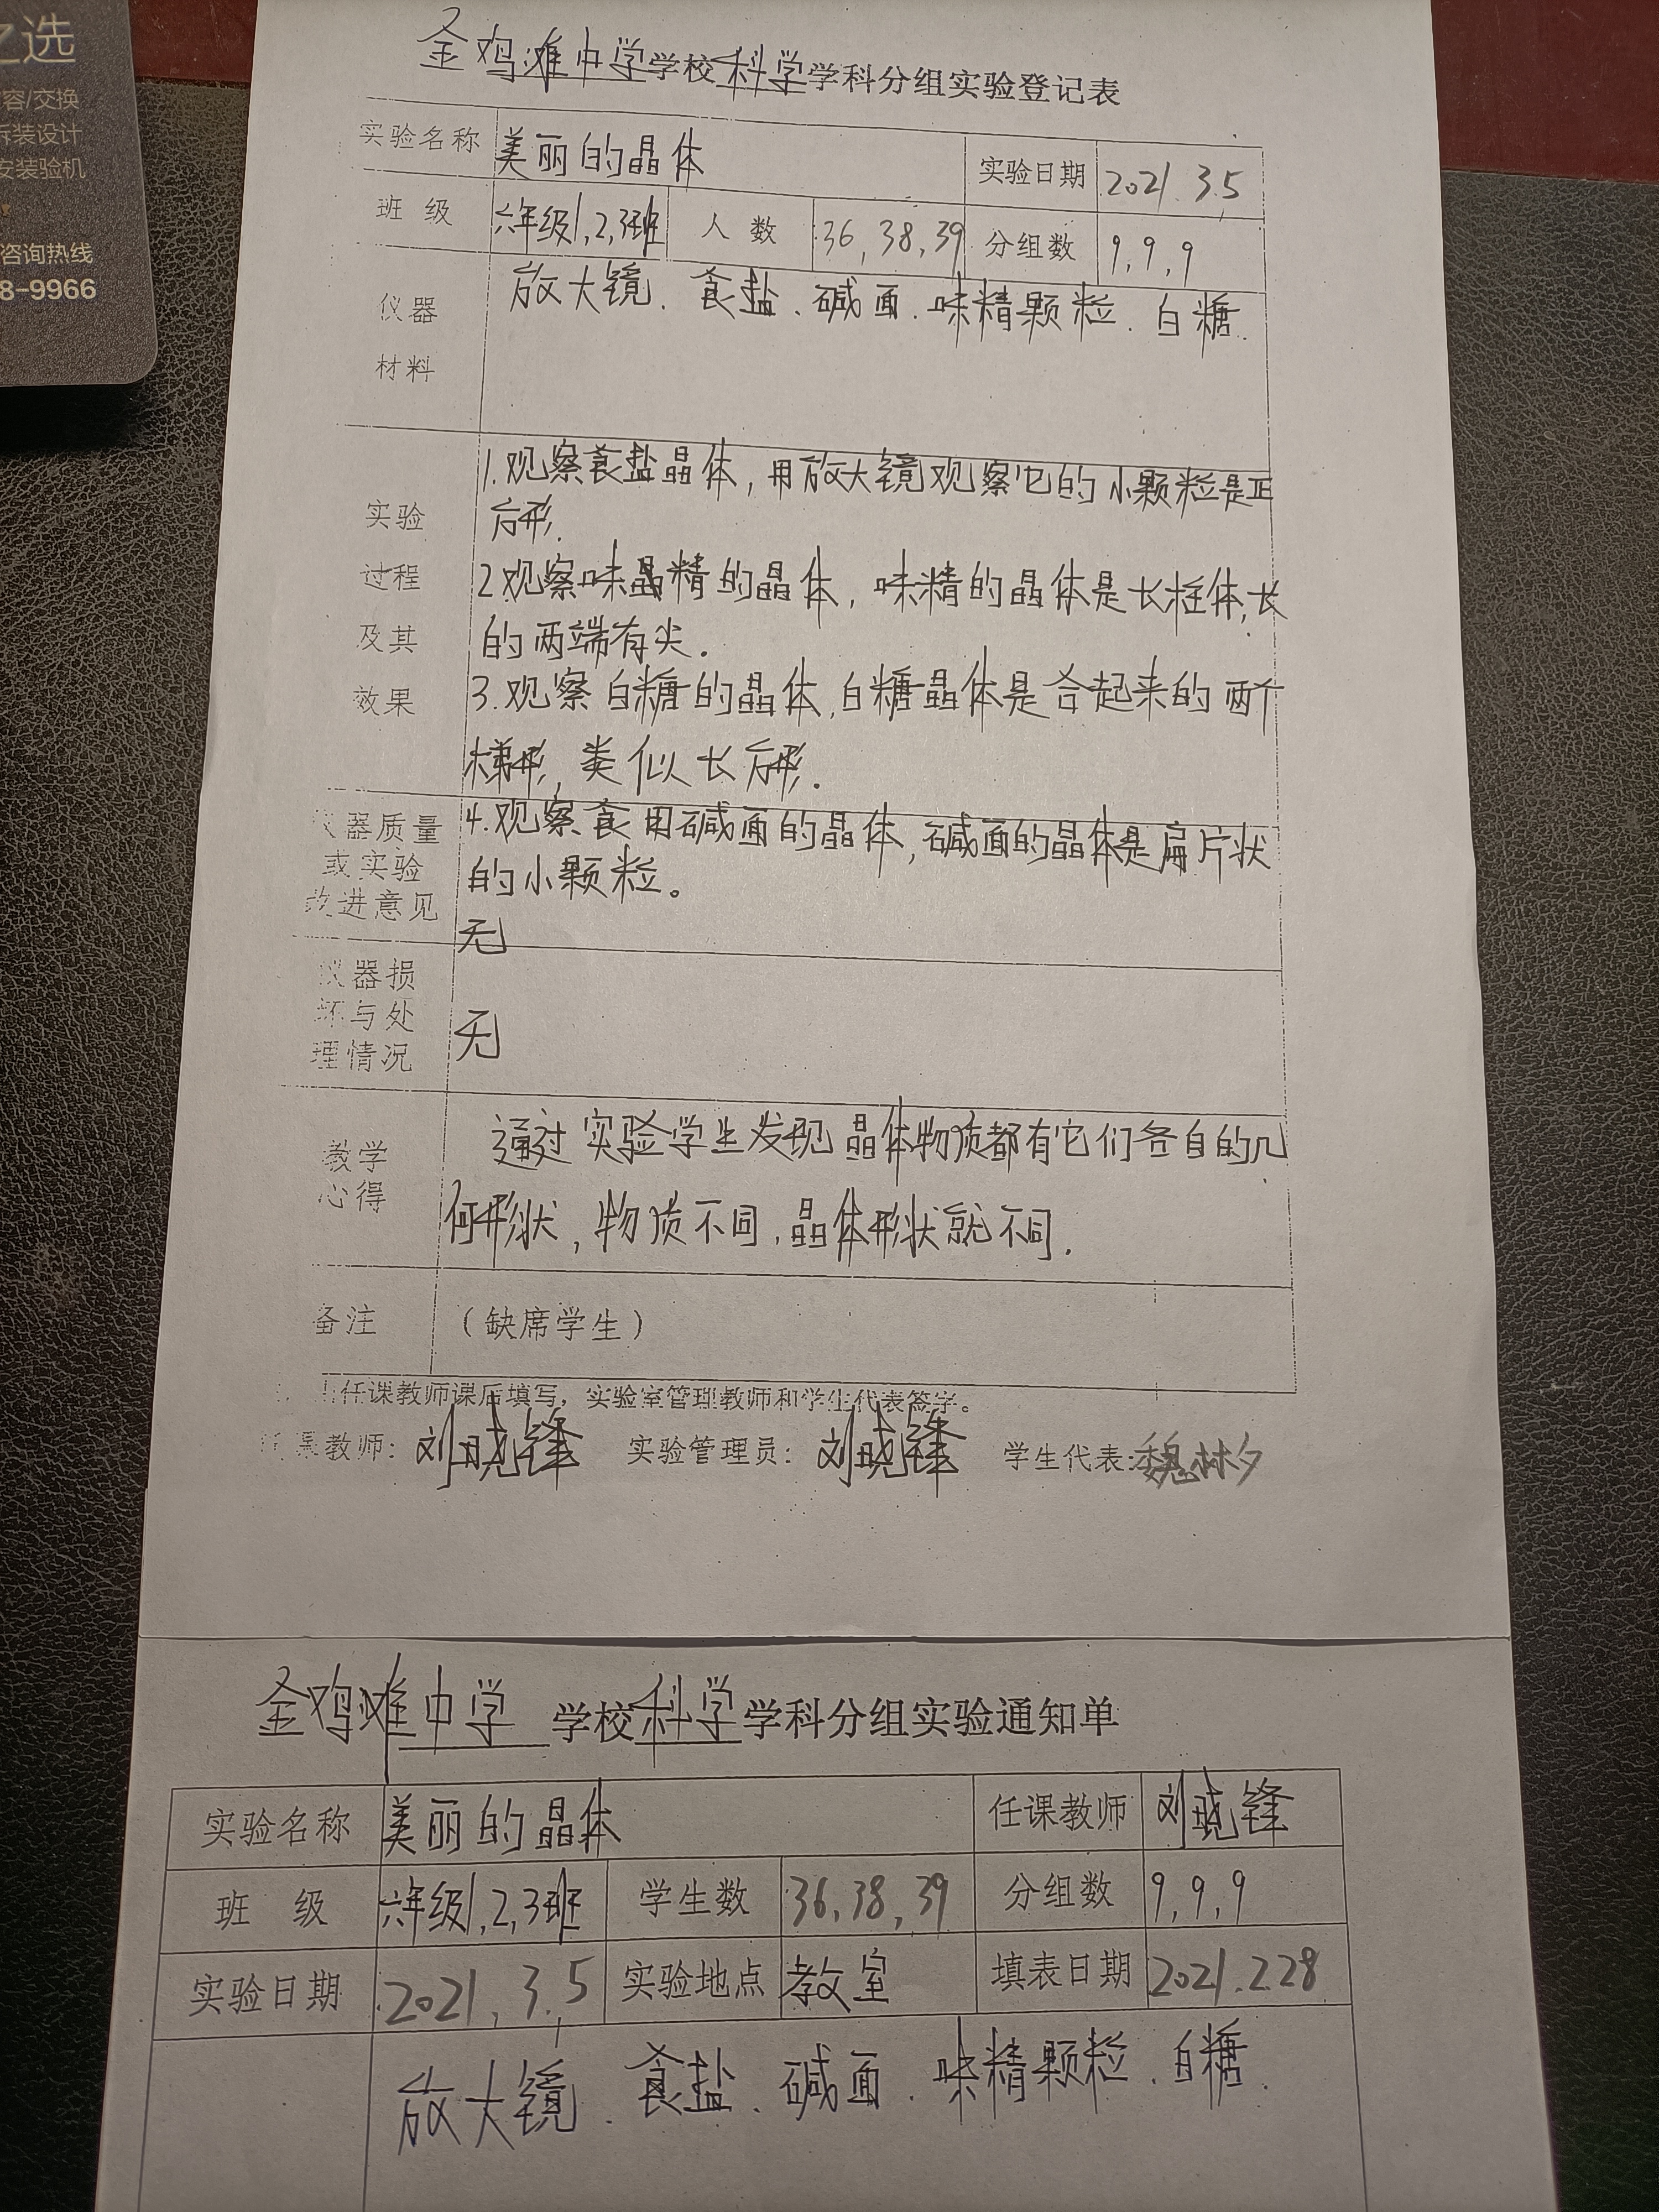 之选
容/交换
拆装设计
安装验机
咨询热线
8-9966
金鸡滩中学学校科学学科分组实验登记表
实验名称 美丽的晶体 实验日期 2021.3.5
班 级 六年级1,2,3班 人 数 36,38,39 分组数 9,9,9
仪器 放大镜.食盐.碱面.味精颗粒.白糖.
材料
1.观察食盐晶体,用放大镜观察它的小颗粒是正
实验 方形.
过程 2.观察味晶精的晶体,味精的晶体是长柱体,长
及其 的两端有尖.
效果 3.观察白糖的晶体,白糖晶体是合起来的两个
梯形,类似长方形.
仪器质量 4.观察食用碱面的晶体,碱面的晶体是扁片状
或实验 的小颗粒。
改进意见 无
仪器损
坏与处 无
理情况
教学 通过实验学生发现晶体物质都有它们各自的几
心得 何形状,物质不同,晶体形状就不同.
备注 (缺席学生)
任课教师课后填写,实验室管理教师和学生代表签字。
任课教师:刘晓锋 实验管理员:刘晓锋 学生代表:魏林夕
金鸡滩中学 学校科学学科分组实验通知单
实验名称 美丽的晶体 任课教师 刘晓锋
班 级 六年级1,2,3班 学生数 36,38,39 分组数 9,9,9
实验日期 2021.3.5 实验地点 教室 填表日期 2021.2.28
放大镜.食盐.碱面.味精颗粒.白糖.